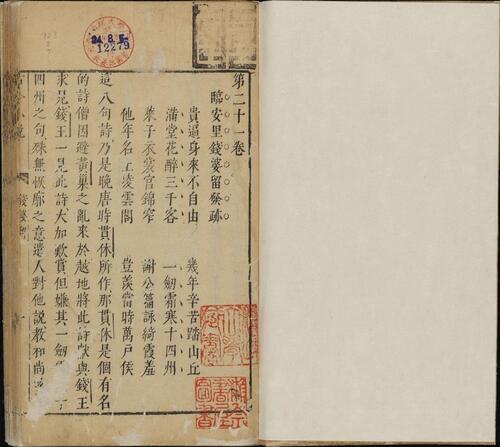 第二十一卷
臨安里錢婆留發跡
貴逼身來不自由 幾年辛苦踏山丘
滿堂花醉三千客 一劒霜寒十四州
萊子衣裳宮錦窄 謝公篇詠綺霞羞
他年名上凌雲閣 豈羨當時萬戶侯
這八句詩乃是晚唐時貫休所作那貫休是個有名
的詩僧因避黃巢之亂來於越地將此詩獻與錢王
求見錢王一見此詩大加歎賞但嫌其一劒
四州之句殊無恢廓之意遣人對他說教和尚
24.8.
12279